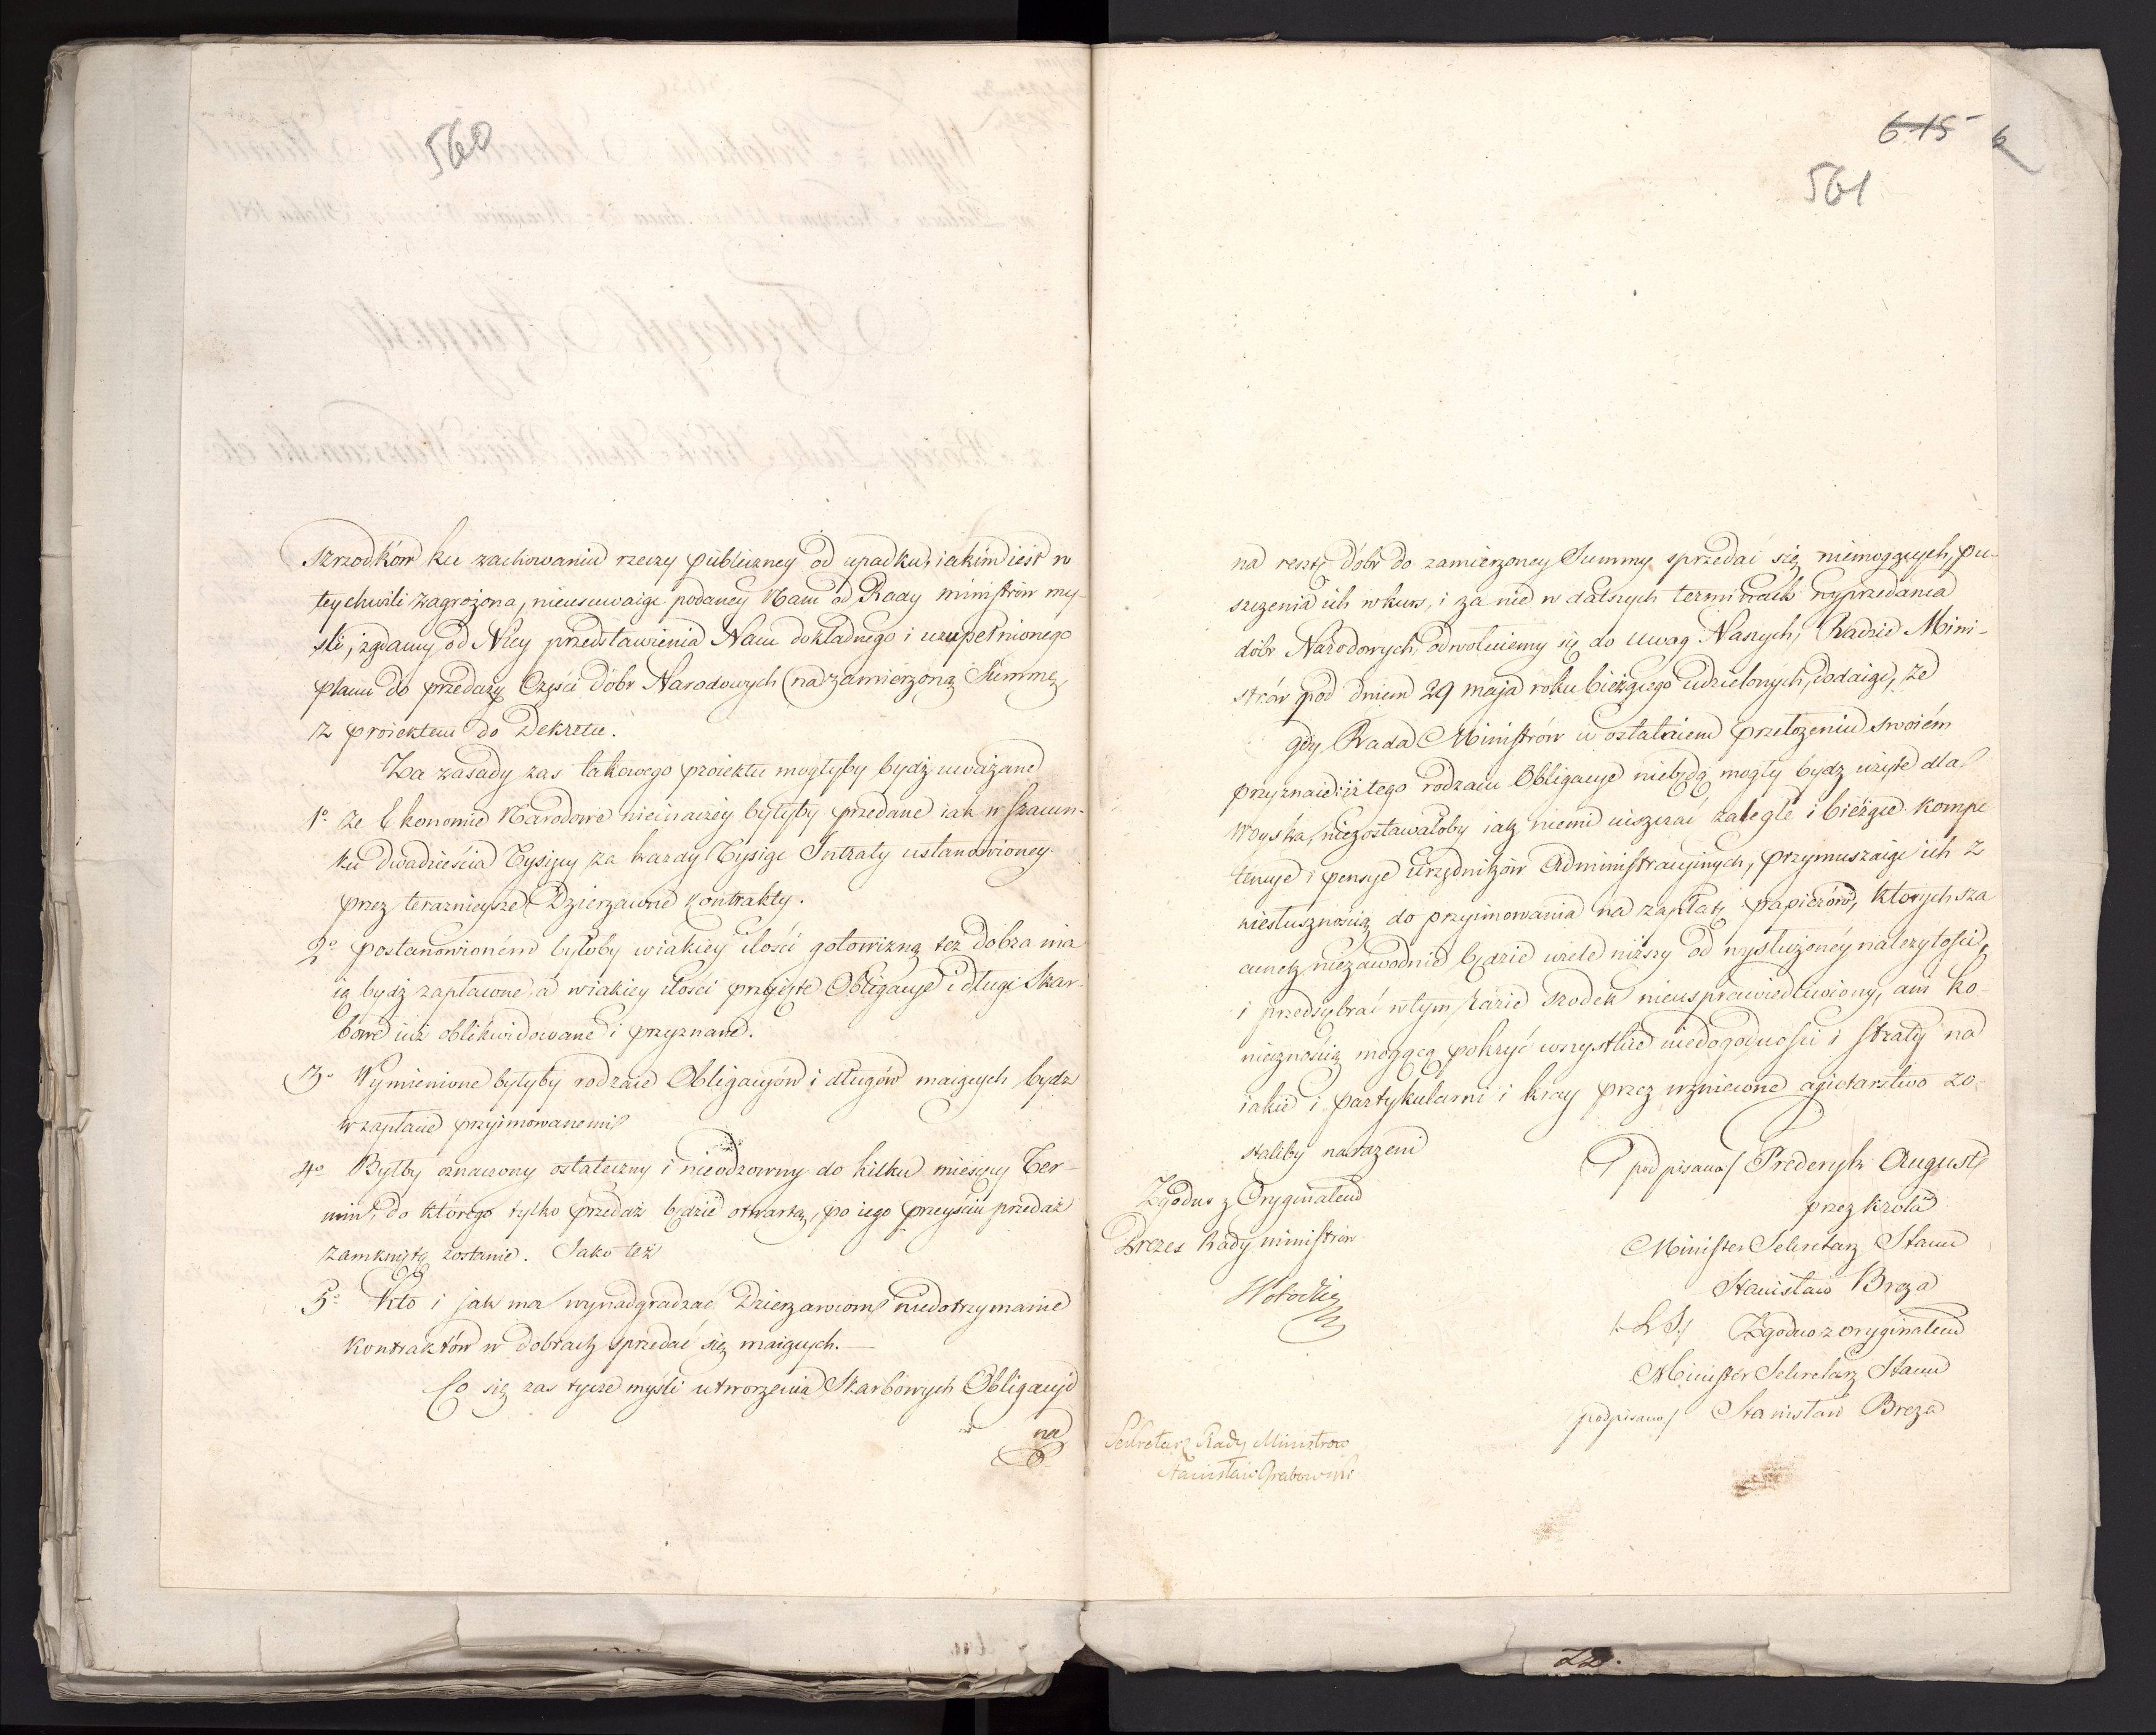 560
szrzodków ku zachowaniu rzeczy publiczney od upadku, iakim iest w
tey chwili zagrożona, nieusuwaiąc podaney Nam od Rady ministrów my-
śli, żądamy od Niey przedstawienia Nam dokładnego i uzupełnionego
planu do przedaży Części dóbr Narodowych na zamierzoną Summę,
z proiektem do Dekretu.
Za zasady zas takowego proiektu mogłyby bydź uważane
1o że Ekonomie Narodowe nieinaczey byłyby przedane iak w szacun-
ku dwadzieścia Tysięcy za kazdy Tysiąc Intraty ustanowioney
przez teraznieysze Dzierzawne kontrakty.
2o postanowioném byłoby wiakiey ilości gotowizną też dobra ma
ią bydź zapłacone, a wiakiey ilości przyięte Obligacye i długi Skar-
bowe iuż oblikwidowane i przyznane.
3o Wymienione byłyby rodzaie Obligacyów i długów maiących bydź
w zapłacie przyimowanemi
4o Byłby oznaczony ostateczny i nieodzowny do kilku miesięcy Ter-
min, do którego tylko przedaż będzie otwartą, po iego przeyściu przedaż
zamkniętą zostanie. Jako też
5o Kto i jak ma wynadgradzać Dzierzawcom niedotrzymanie
kontraktów w dobrach sprzedać się maiących.
Co się zas tycze myśli utworzenia Skarbowych Obligacyi
na
615 6
561
na resztę dóbr do zamierzoney Summy sprzedać się niemogących, pu-
szczenia ich w kurs, i za nie w dalszych terminach wyprzedania
dóbr Narodowych, odwołuiemy się do uwag Naszych, Radzie Mini-
strów pod dniem 29 maja roku bieżącego udzielonych, dodaiąc, że
gdy Rada Ministrów w ostatniem przełożeniu swoiém
przyznaie iż tego rodzaiu Obligacye niebędą mogły bydź użyte dla
Woyska, niezostawałoby iak niemi uiszczać zaległe i bieżące kompe
tencye i pensye Urzędników Administracyinych, przymuszaiąc ich z
niesłusznością do przyimowania na zapłatę papierów, których sza
cunek niezawodnie będzie wiele niższy od wysłużoney należytości,
i przedsębrać w tym razie srodek nieusprawiedliwiony, ani ko-
niecznością mogącą pokryć wszystkie niedogodności i straty na
iakie i partykularni i kray przez wzniecone agiotarstwo zo-
staliby narażeni
podpisano/ Frederyk August
przez Króla
Minister Sekretarz Stanu
Stanisław Breza
/L.S./ Zgodno z oryginałem
Minister Sekretarz Stanu
podpisano/ Stanisław Breza
Zgodno z Oryginałem
Prezes Rady ministrów
Sekretarz Rady Ministrow
Stanisław Grabowski